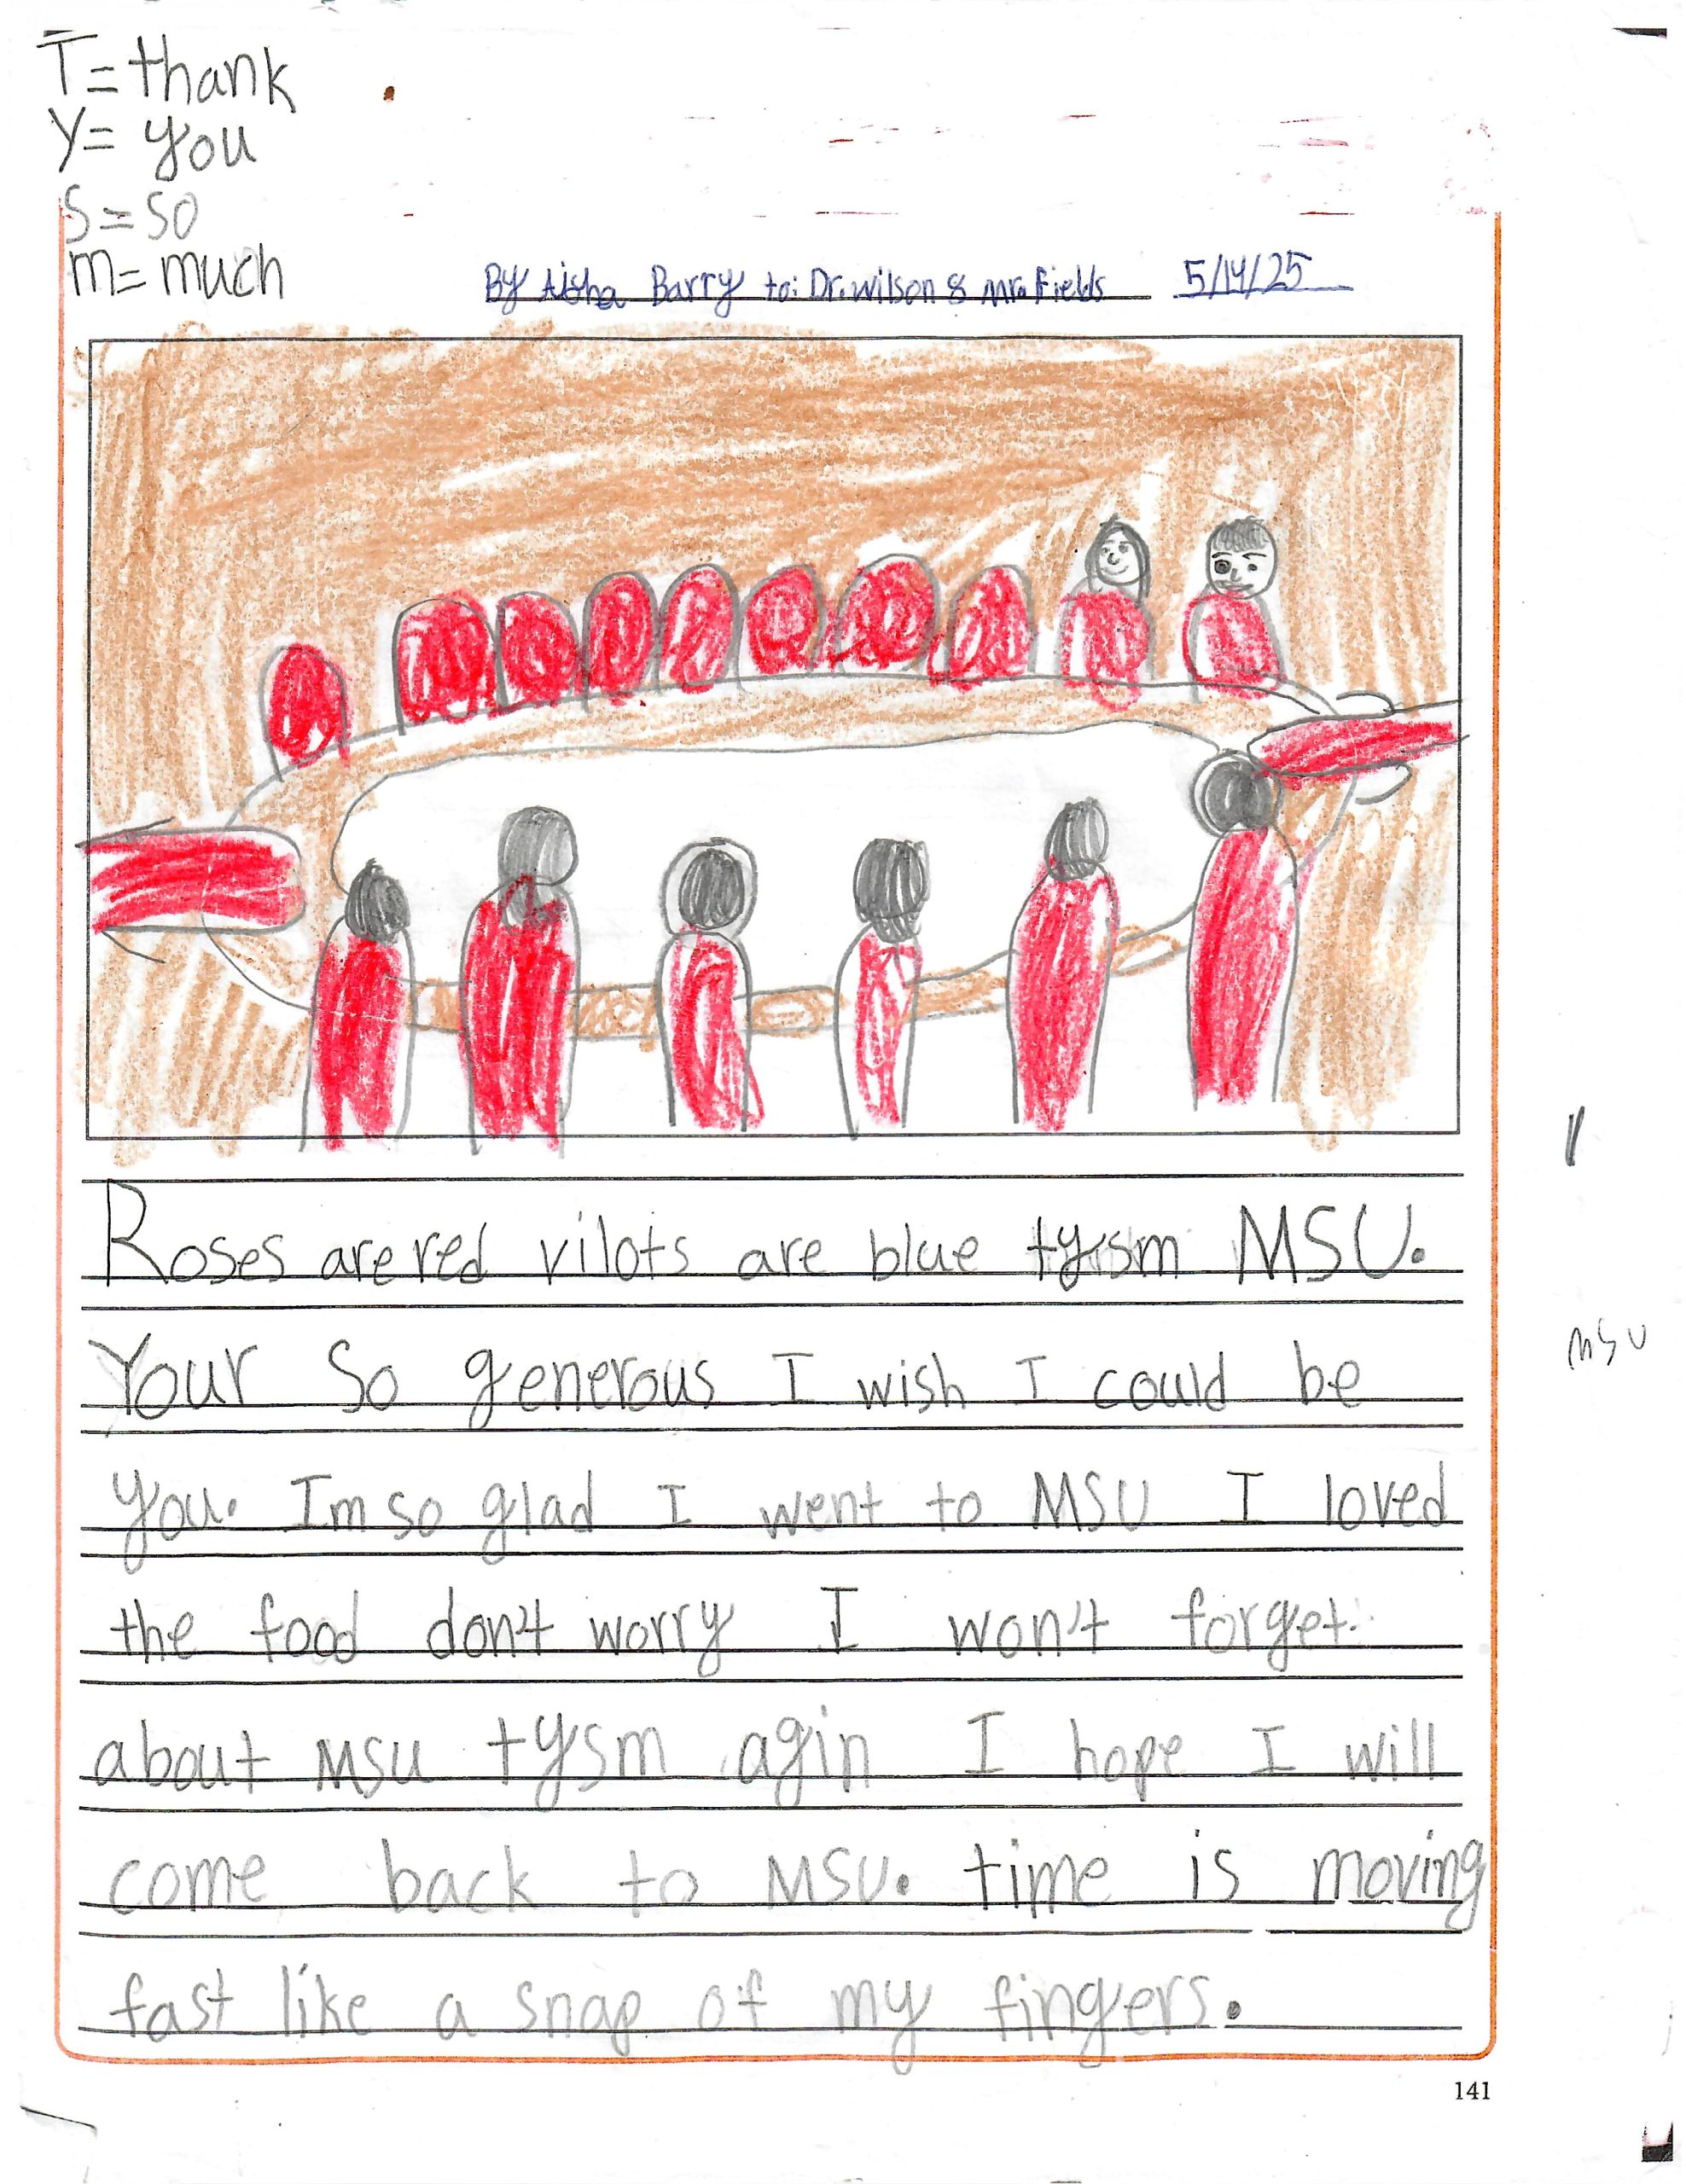 T=thank
Y=you
S=so
m=much
By Aisha Barry to: Dr.wilson & mr.Fields 5/14/25
Roses are red vilots are blue tysm MSU.
Your So generous I wish I could be
you. Im so glad I went to MSU I loved
the food don't worry I won't forget.
about MSU tysm agin I hope I will
come back to MSU. time is moving
fast like a snap of my fingers.
MSU
141